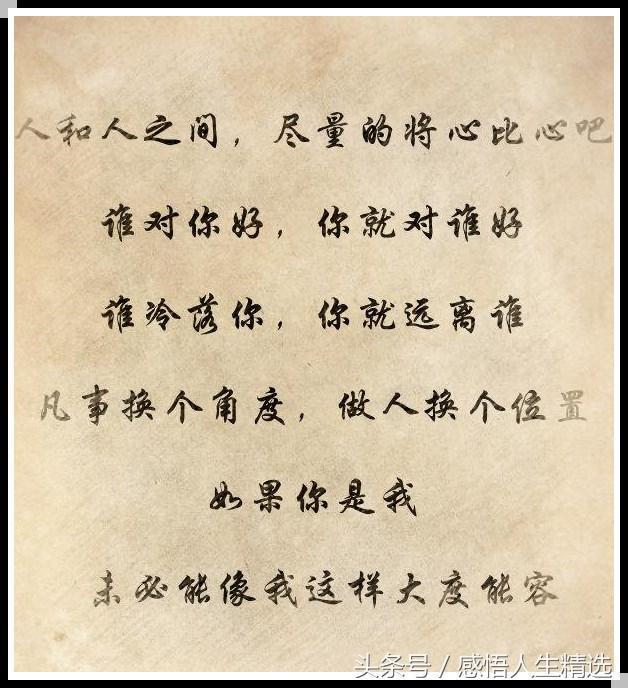 人和人之间，尽量的将心比心吧
谁对你好，你就对谁好
谁冷落你，你就远离谁
凡事换个角度，做人换个位置
如果你是我
未必能像我这样大度能容
头条号 / 感悟人生精选